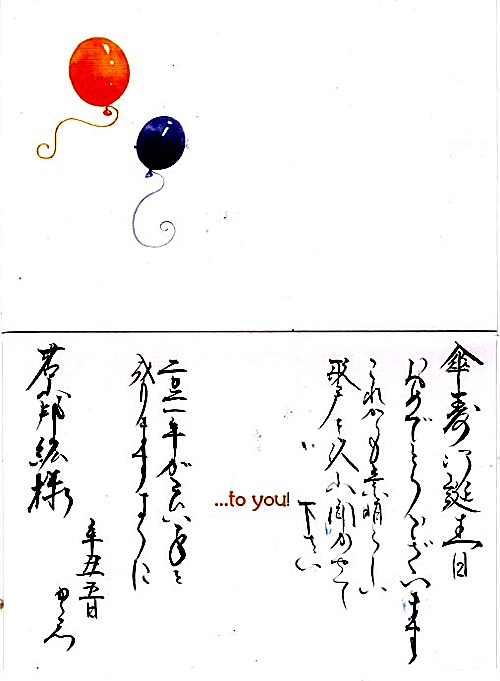 傘寿御誕生日
おめでとうございます
これからも素晴らしい
歌声を
聞かせて
下さい
...to you!
二〇二一年がよい年と
成りますように
邦絵様
辛丑五日